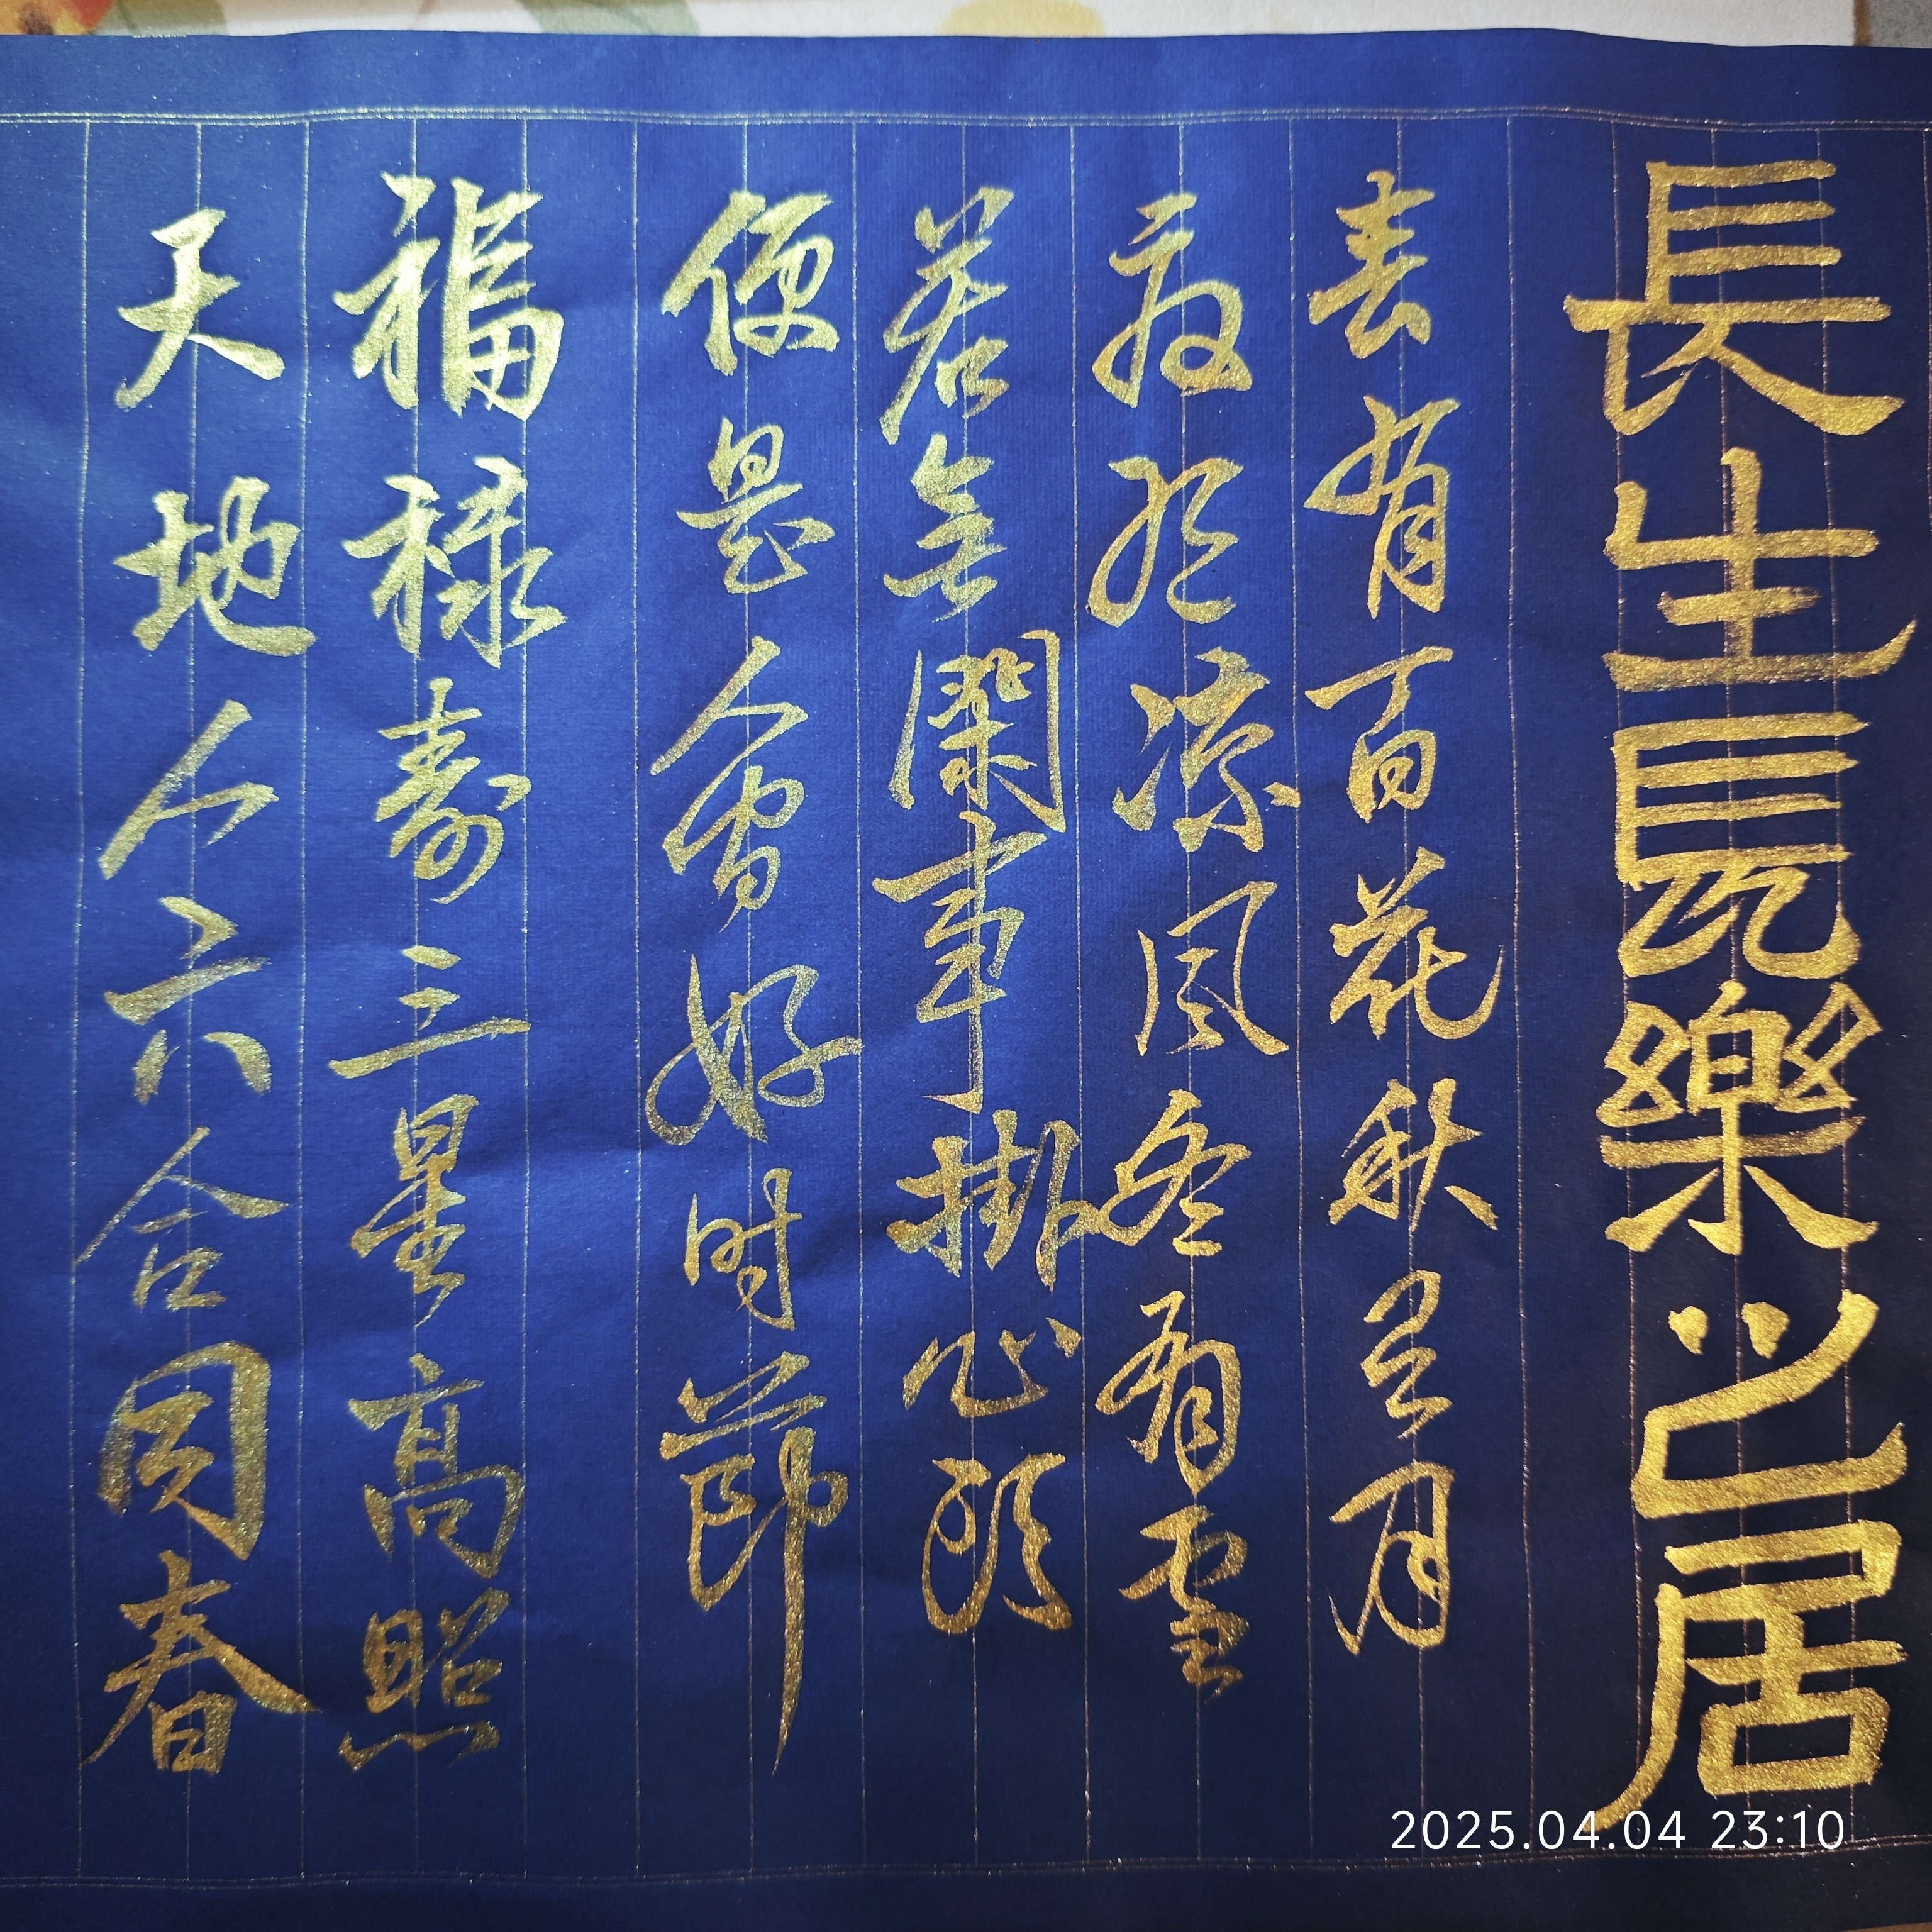 長生長樂之居
春有百花秋望月
夏 凉風冬有雪
若無閑事掛心頭
便是人間好时節
福禄壽三星高照
天地人六合同春
2025.04.04 23:10